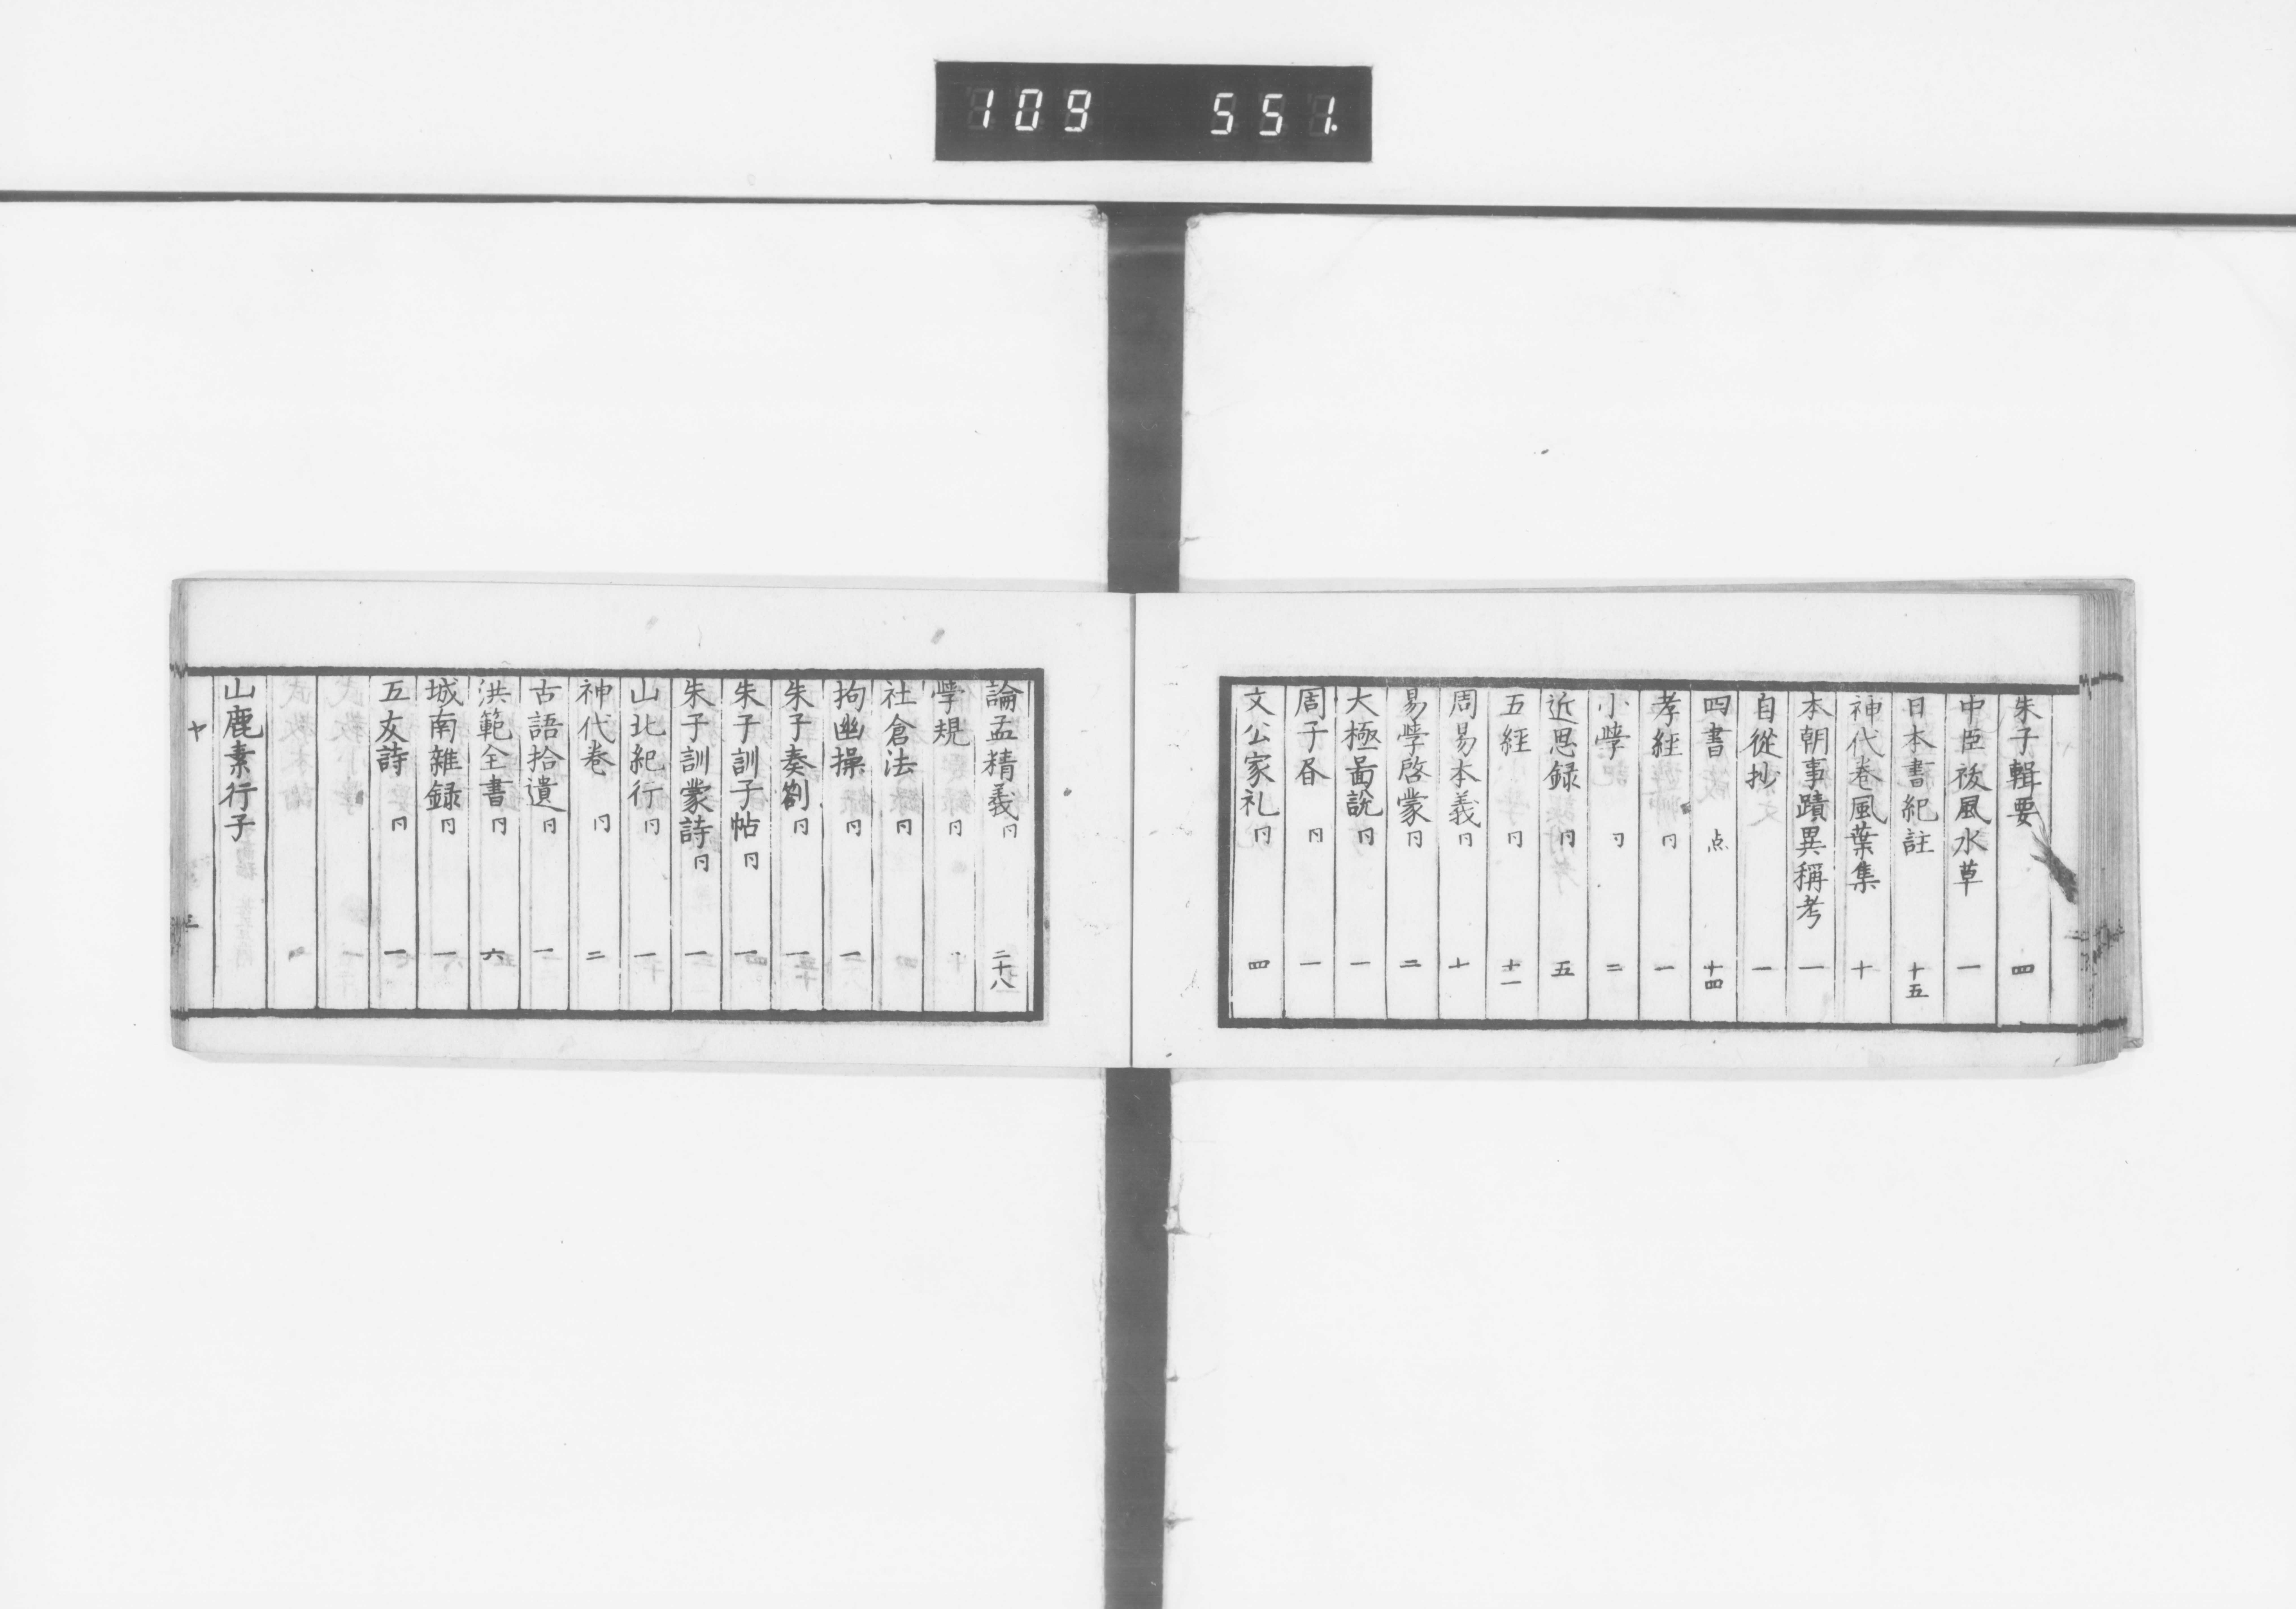 109 551.
朱子輯要 四
中臣祓風水草 一
日本書紀註 十五
神代巻風葉集 十
本朝事蹟異稱考 一
自從抄 一
四書 点 十四
孝經 同 一
小學 同 二
近思録 同 五
五經 同 十一
周易本義 同 十
易學啓蒙 同 二
大極啚説 同 一
周子昏 同 一
文公家礼 同 四
論孟精義 同 二十八
學規 同
社倉法 同
拘幽操 同 一
朱子奏劄 同 一
朱子訓子帖 同 一
朱子訓蒙詩 同 一
山北紀行 同 一
神代巻 同 二
古語拾遺 同 一
洪範全書 同 六
城南雜録 同 一
五友詩 同 一
山鹿素行子
ヤ